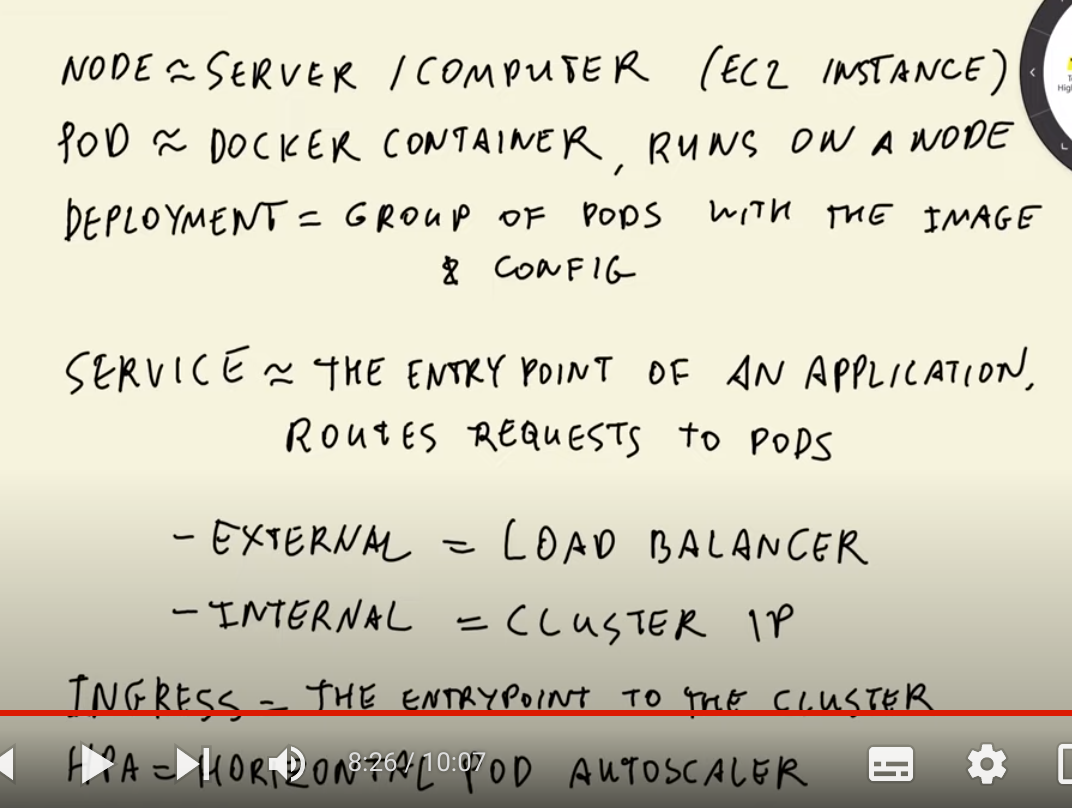 NODE ≈ SERVER / COMPUTER (EC2 INSTANCE)
POD ≈ DOCKER CONTAINER, RUNS ON A NODE
DEPLOYMENT = GROUP OF PODS WITH THE IMAGE
& CONFIG
SERVICE ≈ THE ENTRY POINT OF AN APPLICATION,
ROUTES REQUESTS TO PODS
- EXTERNAL = LOAD BALANCER
- INTERNAL = CLUSTER IP
INGRESS = THE ENTRYPOINT TO THE CLUSTER
HPA = HORIZONTAL POD AUTOSCALER
8:26 / 10:07